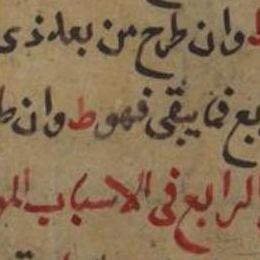 ط وان طرح من بعد ذى
بع فما يبقى فهو ط وان ط
الرابع فى الاسباب المو